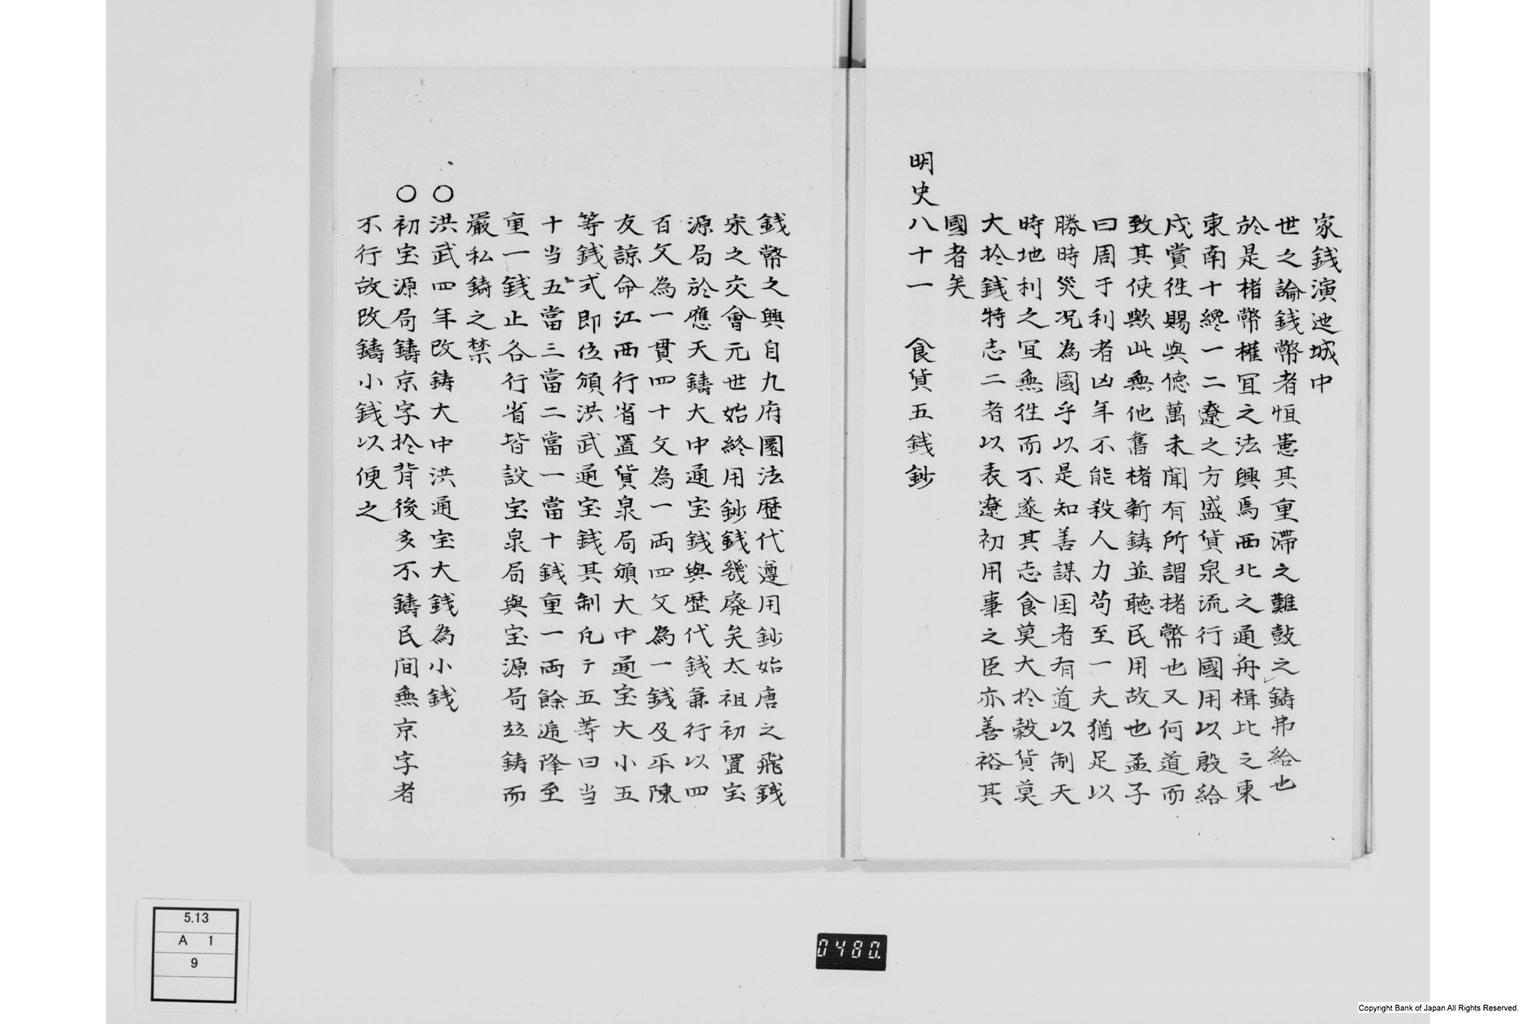 家銭演迆城中
世之論銭幣者恒患其重滞之難鼓之鋳弗給也
於是楮幣權冝之法興焉西北之通舟楫比之東
東南十纔一二遼之方盛貨泉流行國用以殷給
戍賞徃賜與億萬未聞有所謂楮幣也又何道而
致其使欤此無他舊楮新鋳並聴民用故也孟子
曰周于利者凶年不能殺人力苟至一夫猶足以
勝時災况為國乎以是知善謀国者有道以制天
時地利之冝無徃而不遂其志食莫大於穀貨莫
大於銭特志二者以表遼初用事之臣亦善裕其
國者矣
明史八十一 食貨五銭鈔
銭幣之興自九府圜法歴代遵用鈔始唐之飛銭
宋之交會元世始終用鈔銭幾廃矣太祖初置宝
源局於應天鑄大中通宝銭與歴代銭兼行以四
百文為一貫四十文為一両四文為一銭及平陳
友諒命江西行省置貨泉局頒大中通宝大小五
等銭式即位頒洪武通宝銭其制凢五等曰当
十当五當三當二當一當十銭重一両餘逓降至
重一銭止各行省皆設宝泉局與宝源局竝鋳而
嚴私鋳之禁
〇洪武四年改鋳大中洪通宝大銭為小銭
〇初宝源局鑄京字於背後多不鑄民间無京字者
不行故改鑄小銭以便之
5.13
A 1
9
0480.
Copyright Bank of Japan All Rights Reserved.